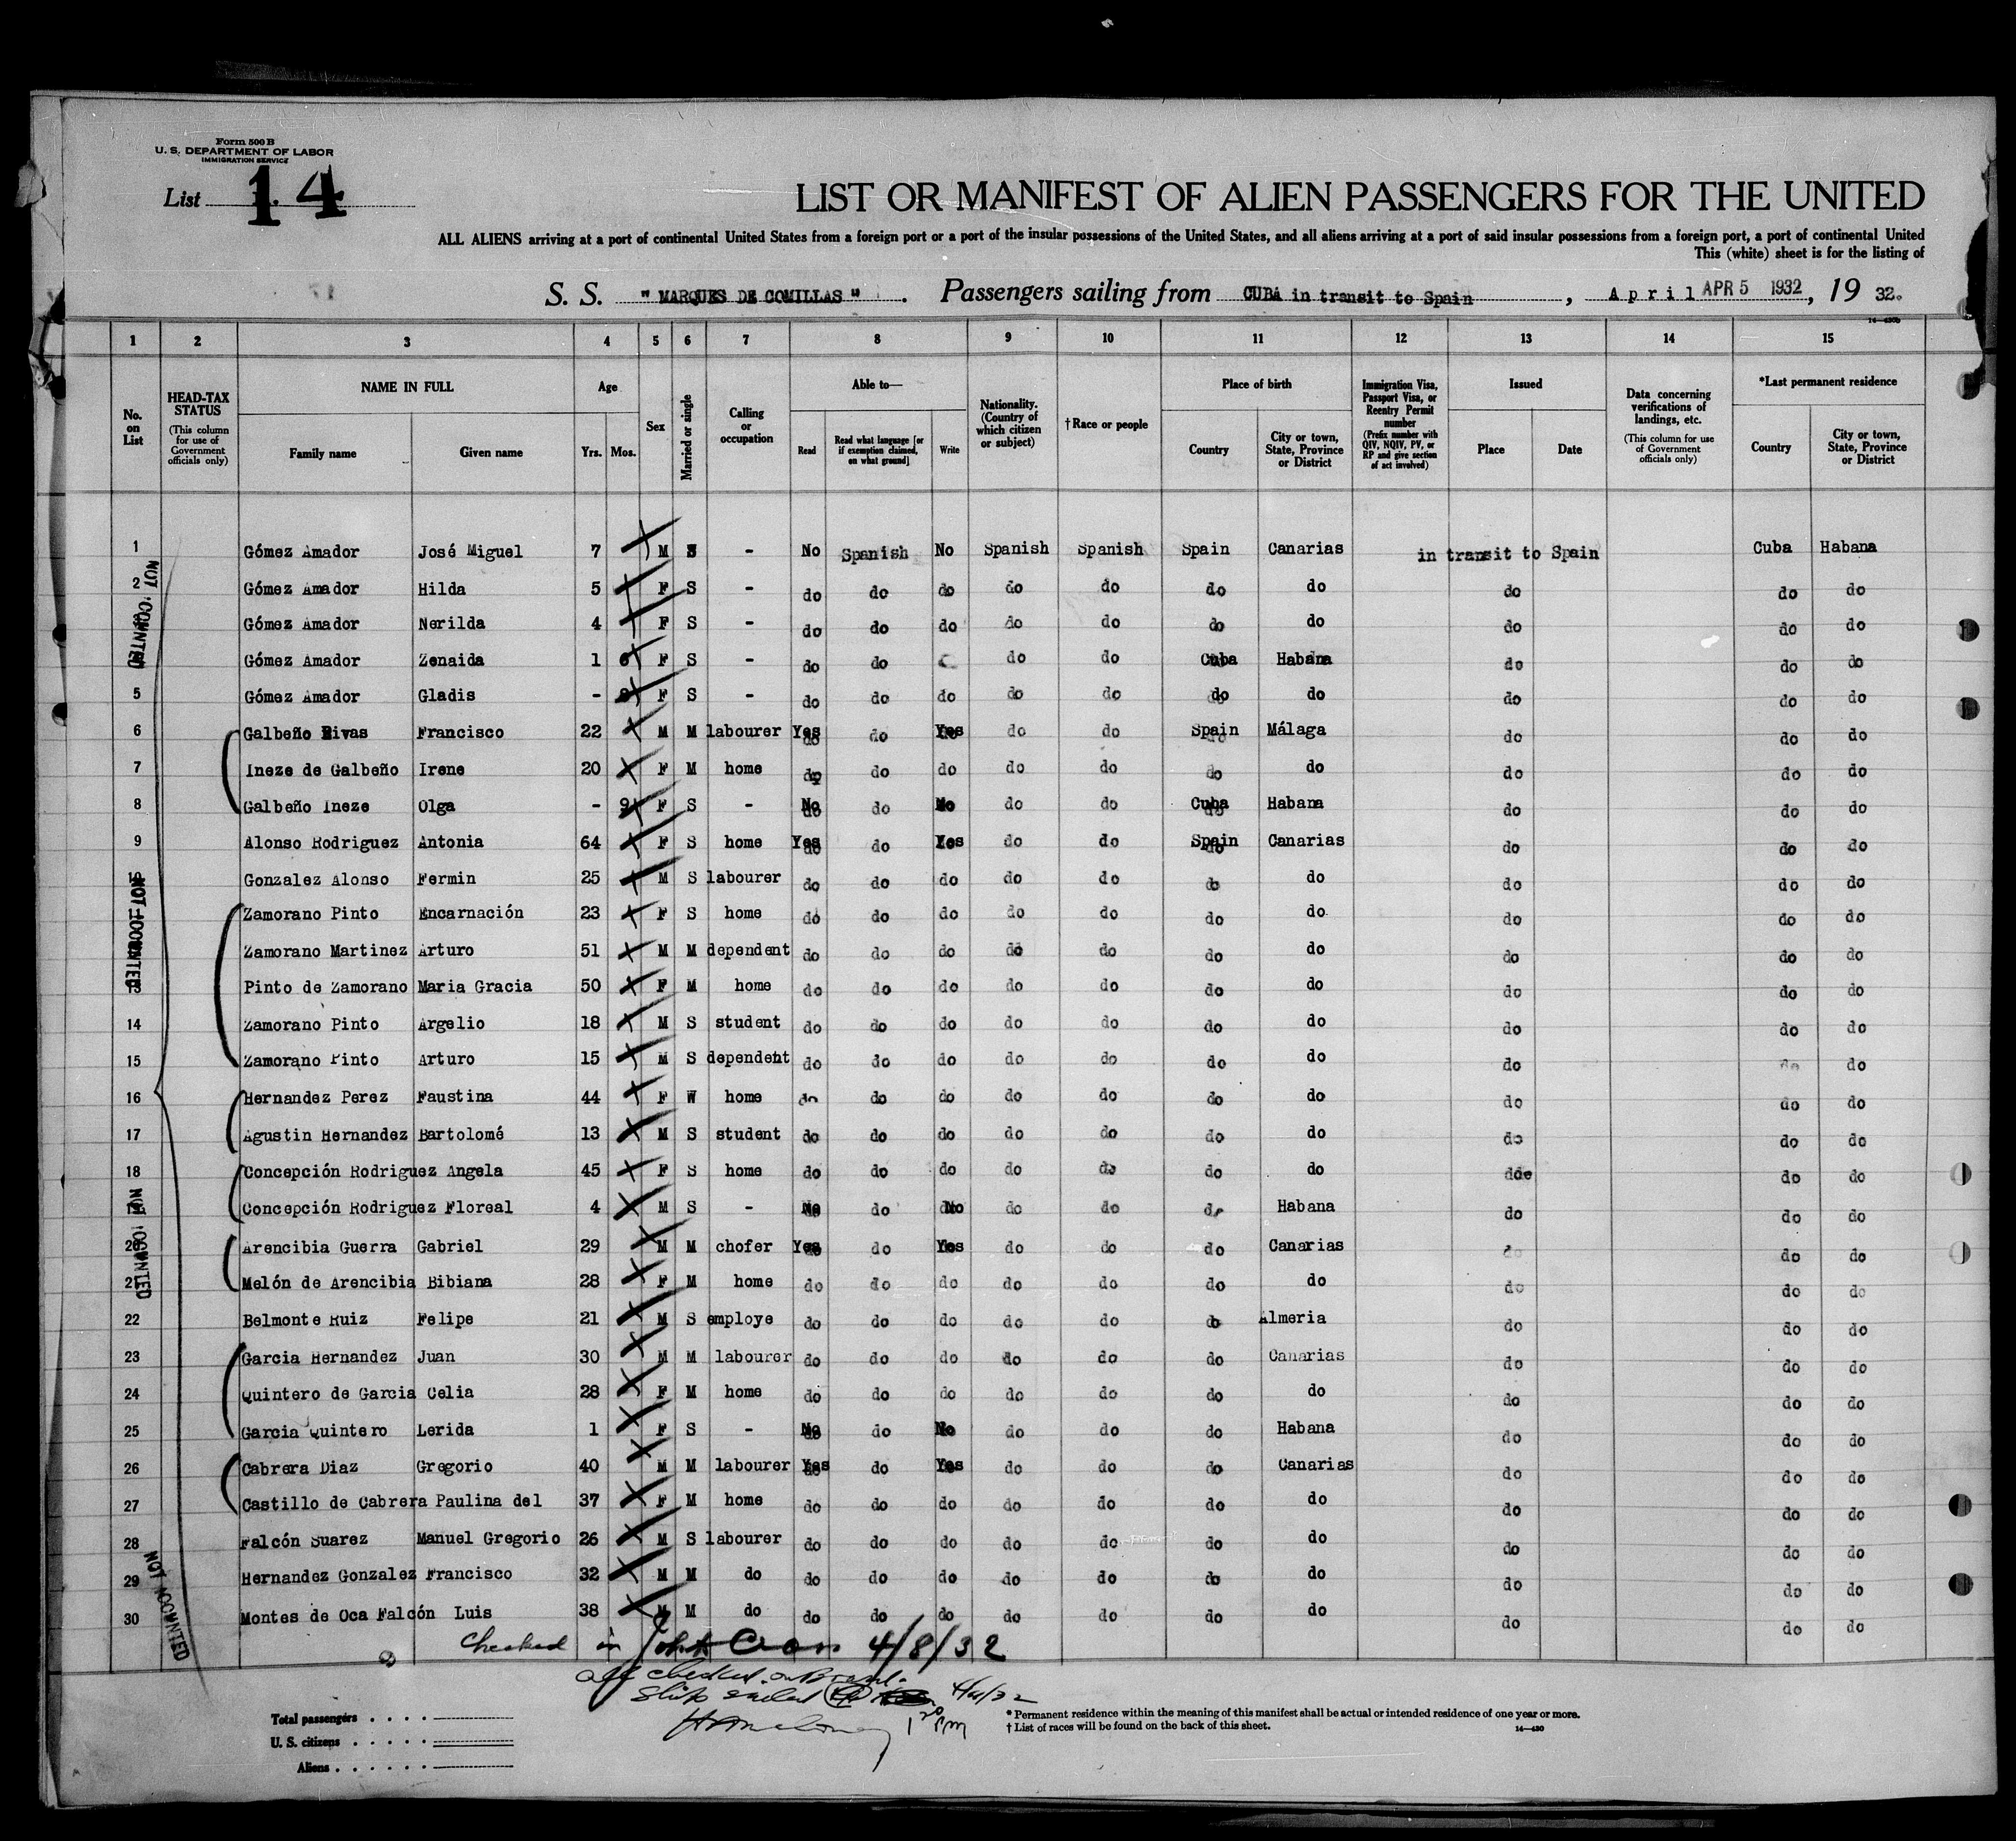 Form 500 B
U. S. DEPARTMENT OF LABOR
IMMIGRATION SERVICE
List 14
LIST OR MANIFEST OF ALIEN PASSENGERS FOR THE UNITED
ALL ALIENS arriving at a port of continental United States from a foreign port or a port of the insular possessions of the United States, and all aliens arriving at a port of said insular possessions from a foreign port, a port of continental United
This (white) sheet is for the listing of
S. S. " MARQUES DE COMILLAS " . Passengers sailing from CUBA in transit to Spain , April APR 5 1932 , 19 32.
1 2 3 4 5 6 7 8 9 10 11 12 13 14 15
No. on List
HEAD-TAX STATUS (This column for use of Government officials only)
NAME IN FULL Family name Given name
Age Yrs. Mos.
Sex
Married or single
Calling or occupation
Able to— Read Read what language [or if exemption claimed, on what ground] Write
Nationality. (Country of which citizen or subject)
†Race or people
Place of birth Country City or town, State, Province or District
Immigration Visa, Passport Visa, or Reentry Permit number (Prefix number with QIV, NQIV, PV, or RP and give section of act involved)
Issued Place Date
Data concerning verifications of landings, etc. (This column for use of Government officials only)
*Last permanent residence Country City or town, State, Province or District
1 Gómez Amador José Miguel 7 M S - No Spanish No Spanish Spanish Spain Canarias in transit to Spain Cuba Habana
2 Gómez Amador Hilda 5 F S - do do do do do do do do do do
Gómez Amador Nerilda 4 F S - do do do do do do do do do do
Gómez Amador Zenaida 1 6 F S - do do do do Cuba Habana do do do
5 Gómez Amador Gladis - F S - do do do do do do do do do do
6 Galbeño Rivas Francisco 22 M M labourer Yes do Yes do do Spain Málaga do do do
7 Ineze de Galbeño Irene 20 F M home do do do do do do do do do do
8 Galbeño Ineze Olga - 9 F S - No do No do do Cuba Habana do do do
9 Alonso Rodriguez Antonia 64 F S home Yes do Yes do do Spain Canarias do do do
10 Gonzalez Alonso Fermin 25 M S labourer do do do do do do do do do do
11 Zamorano Pinto Encarnación 23 F S home do do do do do do do do do do
Zamorano Martinez Arturo 51 M M dependent do do do do do do do do do do
13 Pinto de Zamorano Maria Gracia 50 F M home do do do do do do do do do do
14 Zamorano Pinto Argelio 18 M S student do do do do do do do do do do
15 Zamorano Pinto Arturo 15 M S dependent do do do do do do do do do do
16 Hernandez Perez Faustina 44 F W home do do do do do do do do do do
17 Agustin Hernandez Bartolomé 13 M S student do do do do do do do do do do
18 Concepción Rodriguez Angela 45 F S home do do do do do do do do do do
19 Concepción Rodriguez Floreal 4 M S - No do No do do do Habana do do do
20 Arencibia Guerra Gabriel 29 M M chofer Yes do Yes do do do Canarias do do do
21 Melón de Arencibia Bibiana 28 F M home do do do do do do do do do do
22 Belmonte Ruiz Felipe 21 M S employe do do do do do do Almeria do do do
23 Garcia Hernandez Juan 30 M M labourer do do do do do do Canarias do do do
24 Quintero de Garcia Celia 28 F M home do do do do do do do do do do
25 Garcia Quintero Lerida 1 F S - No do No do do do Habana do do do
26 Cabrera Diaz Gregorio 40 M M labourer Yes do Yes do do do Canarias do do do
27 Castillo de Cabrera Paulina del 37 F M home do do do do do do do do do do
28 Falcón Suarez Manuel Gregorio 26 M S labourer do do do do do do do do do do
29 Hernandez Gonzalez Francisco 32 M M do do do do do do do do do do do
30 Montes de Oca Falcón Luis 38 M M do do do do do do do do do do do
NOT COUNTED
NOT COUNTED
NOT COUNTED
NOT COUNTED
Checked in 4/8/32
all checked on Board.
Ship sailed
PM
Total passengers . . . .
U. S. citizens . . . . .
Aliens . . . . . .
* Permanent residence within the meaning of this manifest shall be actual or intended residence of one year or more.
† List of races will be found on the back of this sheet.
14—430